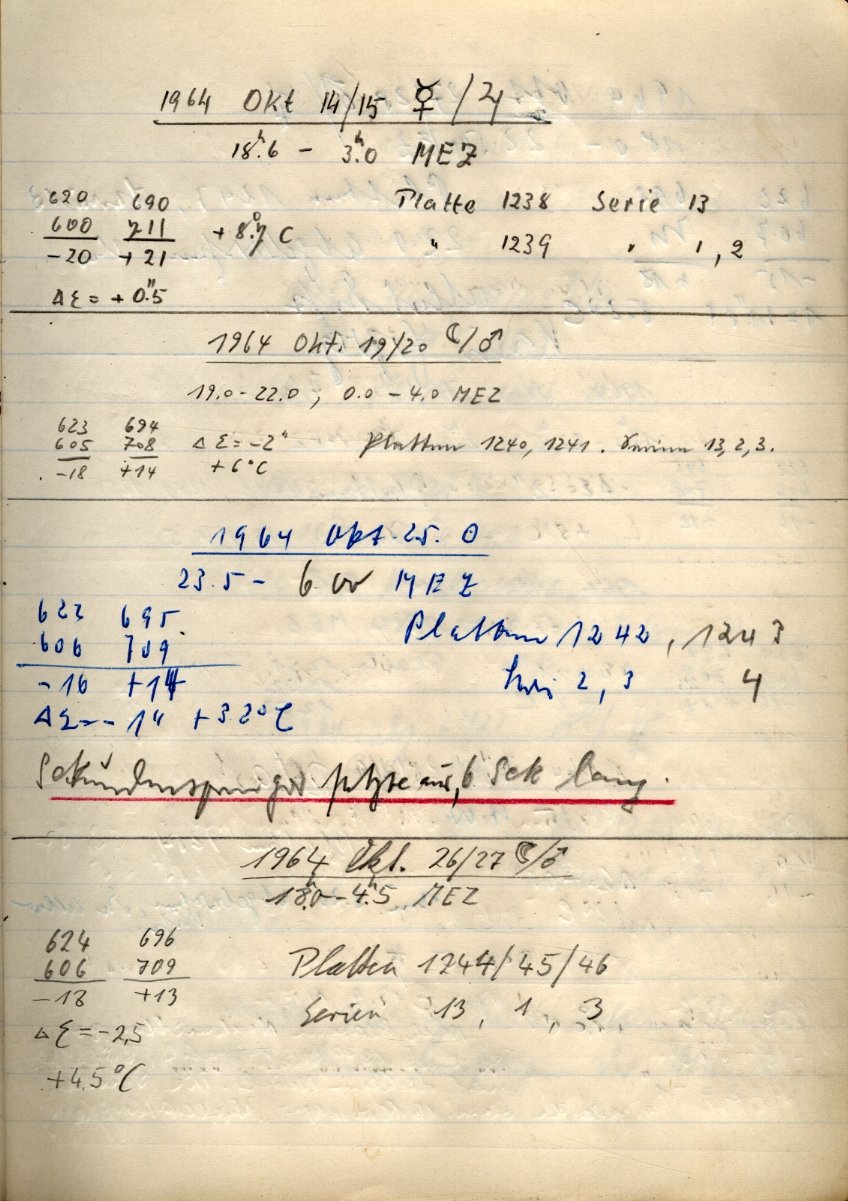 1964 Okt 14/15 ☿/♃
18ʰ.6 – 3ʰ.0 MEZ
620 690 Platte 1238 Serie 13
600 711 +8.°7 C " 1239 " 1, 2
-20 +21
Δε = +0."5
1964 Okt. 19/20 ☾/♂
19.0-22.0, 0.0-4.0 MEZ
623 694
605 708 Δε=-2" Platten 1240, 1241. Serien 13, 2, 3.
-18 +14 +6°C
1964 Okt. 25. ⊙
23.5 - 6.00 MEZ
623 695 Platten 1242, 1243
606 709
-16 +14 Serie 2, 3 4
Δε=-1" +3.2°C
Sekundenspringer setzte aus, 6 Sek lang.
1964 Okt. 26/27 ☾/♂
18ʰ.0-4ʰ.5 MEZ
624 696 Platten 1244/45/46
606 709
-18 +13 Serien 13, 1, 3,
Δε=-2,5
+4.5°C